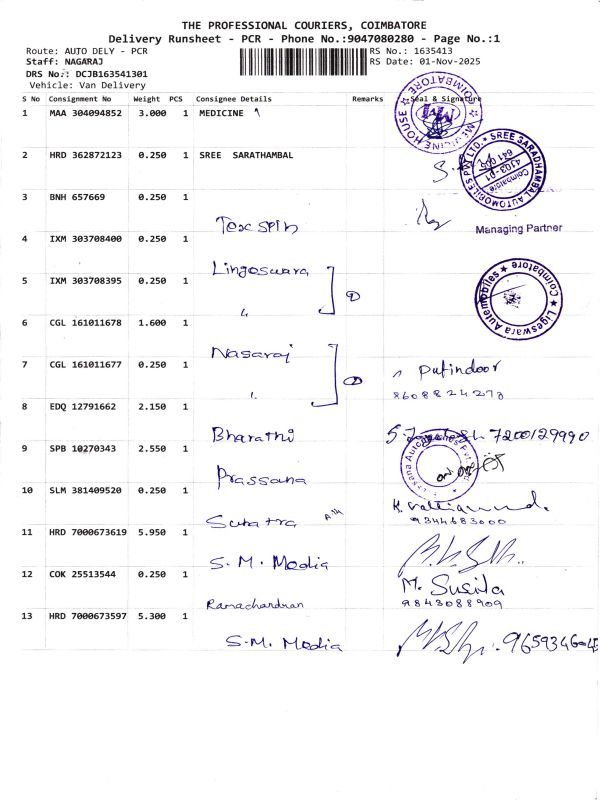 THE PROFESSIONAL COURIERS, COIMBATORE
Delivery Runsheet - PCR - Phone No.:9047080280 - Page No.:1
Route: AUTO DELY - PCR RS No.: 1635413
Staff: NAGARAJ RS Date: 01-Nov-2025
DRS No.: DCJB163541301
Vehicle: Van Delivery
S No Consignment No Weight PCS Consignee Details Remarks Seal & Signature
1 MAA 304094852 3.000 1 MEDICINE
MEDICINE HOUSE COIMBATORE
2 HRD 362872123 0.250 1 SREE SARATHAMBAL
SREE SARADHAMBAL AUTOMOBILES PVT LTD. Coimbatore 641 005
3 BNH 657669 0.250 1
Tex spin
Managing Partner
4 IXM 303708400 0.250 1
Lingeswara
5 IXM 303708395 0.250 1
Ligeswara Automobiles Coimbatore
6 CGL 161011678 1.600 1
Nagaraj
7 CGL 161011677 0.250 1
8608824273
8 EDQ 12791662 2.150 1
Bharathi 7200129990
9 SPB 10270343 2.550 1
Prassana
10 SLM 381409520 0.250 1
9344683000
11 HRD 7000673619 5.950 1
S.M. Media
12 COK 25513544 0.250 1
Ramachandran M. Susila
9843088909
13 HRD 7000673597 5.300 1
S.M. Media